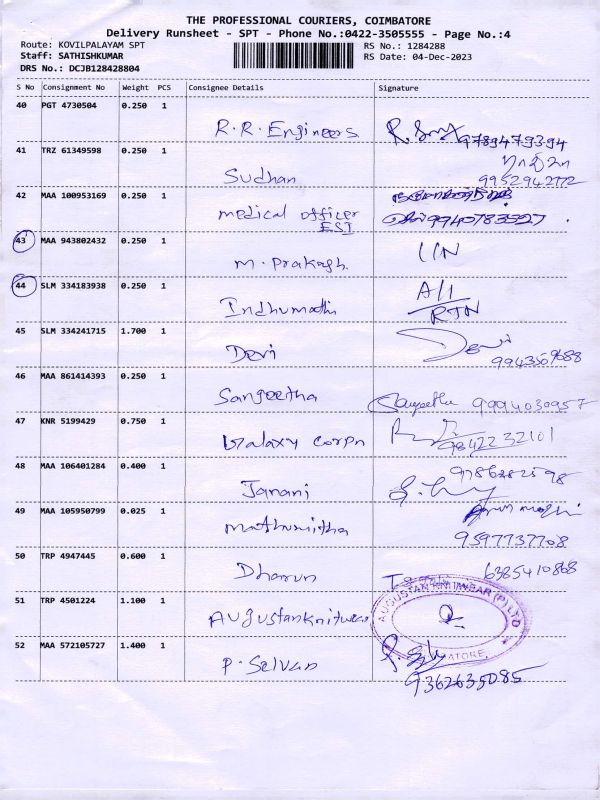 THE PROFESSIONAL COURIERS, COIMBATORE
Delivery Runsheet - SPT - Phone No.:0422-3505555 - Page No.:4
Route: KOVILPALAYAM SPT
RS No.: 1284288
Staff: SATHISHKUMAR
RS Date: 04-Dec-2023
DRS No.: DCJB128428804
S No Consignment No Weight PCS Consignee Details Signature
40 PGT 4730504 0.250 1
R.R. Engineers
9789479394
41 TRZ 61349598 0.250 1
Sudhan
9952942772
42 MAA 100953169 0.250 1
medical officer
ESI
9940783527
43 MAA 943802432 0.250 1
M. Prakash
44 SLM 334183938 0.250 1
Indhumathi
A/1
RTN
45 SLM 334241715 1.700 1
Devi
Devi
9943509688
46 MAA 861414393 0.250 1
Sangeetha
Sangeetha 9994030957
47 KNR 5199429 0.750 1
Galaxy Corpn
9842232101
48 MAA 106401284 0.400 1
Janani
49 MAA 105950799 0.025 1
mathumitha
9597737708
50 TRP 4947445 0.600 1
Dharun
6385410868
51 TRP 4501224 1.100 1
Augustanknitwear
AUGUSTAN KNITWEAR (P) LTD
52 MAA 572105727 1.400 1
P. Selvan
9362635085